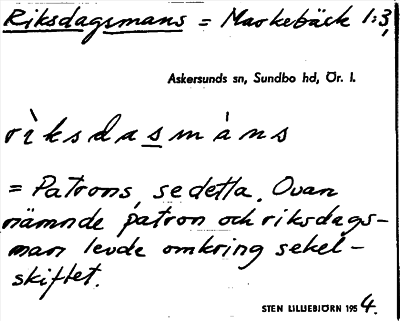 Riksdagsmans = Markebäck 1:3,
Askersunds sn, Sundbo hd, Ör. l.
rìksdasmàns
= Patrons, se detta. Ovan
nämnde patron och riksdags-
man levde omkring sekel-
skiftet.
STEN LILLIEBJÖRN 1954.